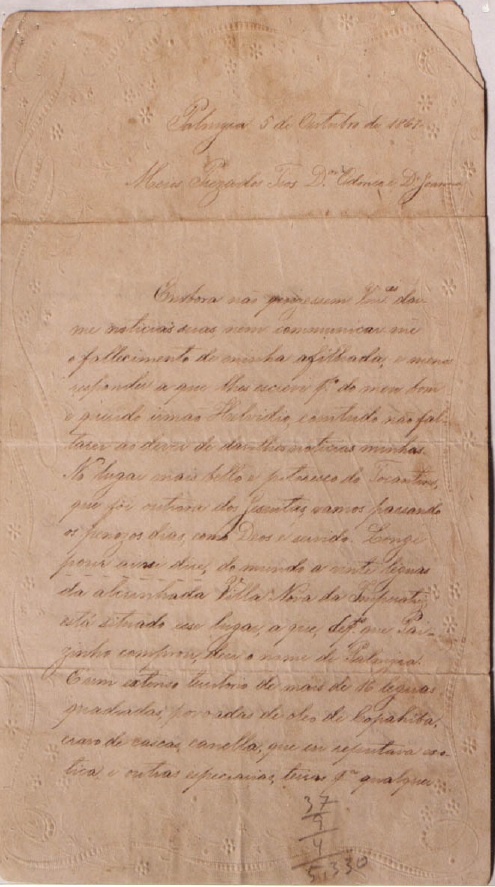 Palmyra 5 de Outubro de 186
Meus Prezados Tios D. e D. Joanna
Embora não Vmces dar
me noticias suas nem communicar-me
o fallecimento de minha afilhada, e menos
responder a que lhes escrevi do meu bom
e querido irmão Helvidio, comtudo não fal-
tarei ao dever de dar-lhes noticias minhas.
No lugar mais bello e pitoresco do Tocantins,
que foi outrora dos Jesuitas, vamos passando
os penozos dias, como Deos é servido. Longe
por assim dizer, do mundo a vinte leguas
da Villa Nova da Imperatriz
está situado esse lugar, a que, dips. que Pai-
zinho comprou, deu o nome de Palmyra.
É um extenso territorio de mais de 16 leguas
quadradas, povoadas de oleo de Copahiba,
cravo de cascas, canella, que eu reputava exo-
tica e outras especiarias, terras pa. qualquer
37
9
4
5,330